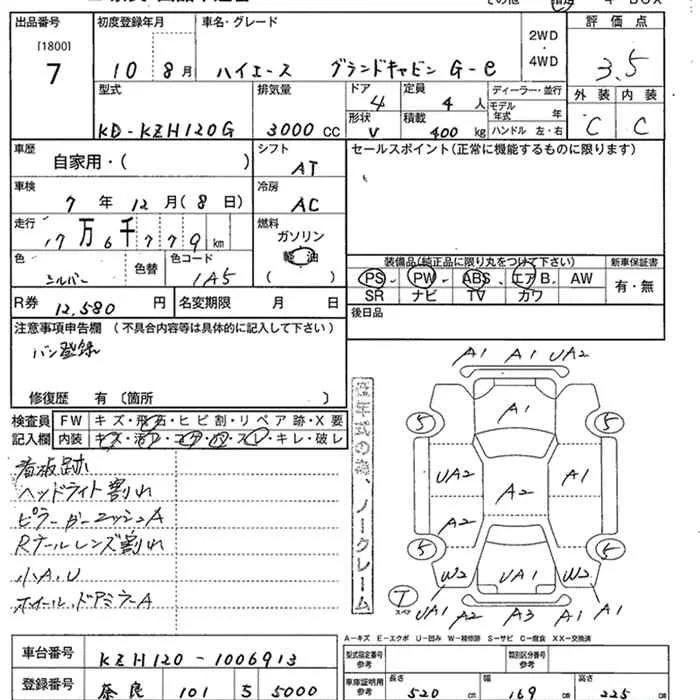 その他
4
BOX
出品番号
[1800]
7
初度登録年月
10 8月
車名・グレード
ハイエース グランドキャビン G-e
2WD
・
4WD
評価点
3.5
型式
KD-KZH120G
排気量
3000 CC
ドア
4
形状
V
定員
4 人
積載
400 kg
ディーラー・並行
モデル
年式 年
ハンドル 左・右
外装
C
内装
C
車歴
自家用・( )
シフト
AT
車検
7 年 12 月 (8 日)
冷房
AC
走行
17万6千779km
燃料
ガソリン
軽油
( )
色
シルバー
色替
色コード
1A5
R券 12,580 円
名変期限 月 日
セールスポイント(正常に機能するものに限ります)
装備品(純正品に限り丸をつけて下さい)
PS PW ABS エアB. AW
SR ナビ TV カワ
新車保証書
有・無
後日品
注意事項申告欄 (不具合内容等は具体的に記入して下さい)
バン登録
修復歴 有 (箇所 )
検査員
記入欄
FW キズ・飛石・ヒビ割・リペア跡・X要
内装 キズ スレ・キレ・破レ
看板跡
ヘッドライト割れ
Rテールレンズ割れ
小A.U
ホイール.ドアミラーA
ノークレーム
A1 A1 UA2
A1
5 5
UA2 A2 A1
A2
5 5
W2 UA1 W2
T
スペア
UA1 A2 A3 A1 A1
A-キズ E-エクボ U-凹み W-補修跡 S-サビ C-腐食 XX-交換済
車台番号
KZH120-1006913
登録番号
奈良 101 5 5000
型式指定番号
参考
類別区分番号
参考
車庫証明用
参考
長さ
520 cm
幅
169 cm
高さ
225 cm